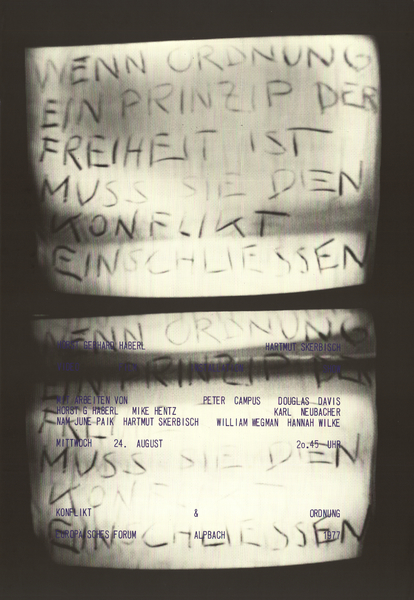 WENN ORDNUNG
EIN PRINZIP DER
FREIHEIT IST
MUSS SIE DEN
KONFLIKT
EINSCHLIESSEN
WENN ORDNUNG
HORST GERHARD HABERL HARTMUT SKERBISCH
EIN PRINZIP DER
MIT ARBEITEN VON PETER CAMPUS DOUGLAS DAVIS
HORST G HABERL MIKE HENTZ KARL NEUBACHER
NAM JUNE PAIK HARTMUT SKERBISCH WILLIAM WEGMAN HANNAH WILKE
MITTWOCH 24. AUGUST 2o.45 UHR
MUSS SIE DEN
KON
KONFLIKT & ORDNUNG
EUROPÄISCHES FORUM ALPBACH 1977
EINSCHLIESSEN